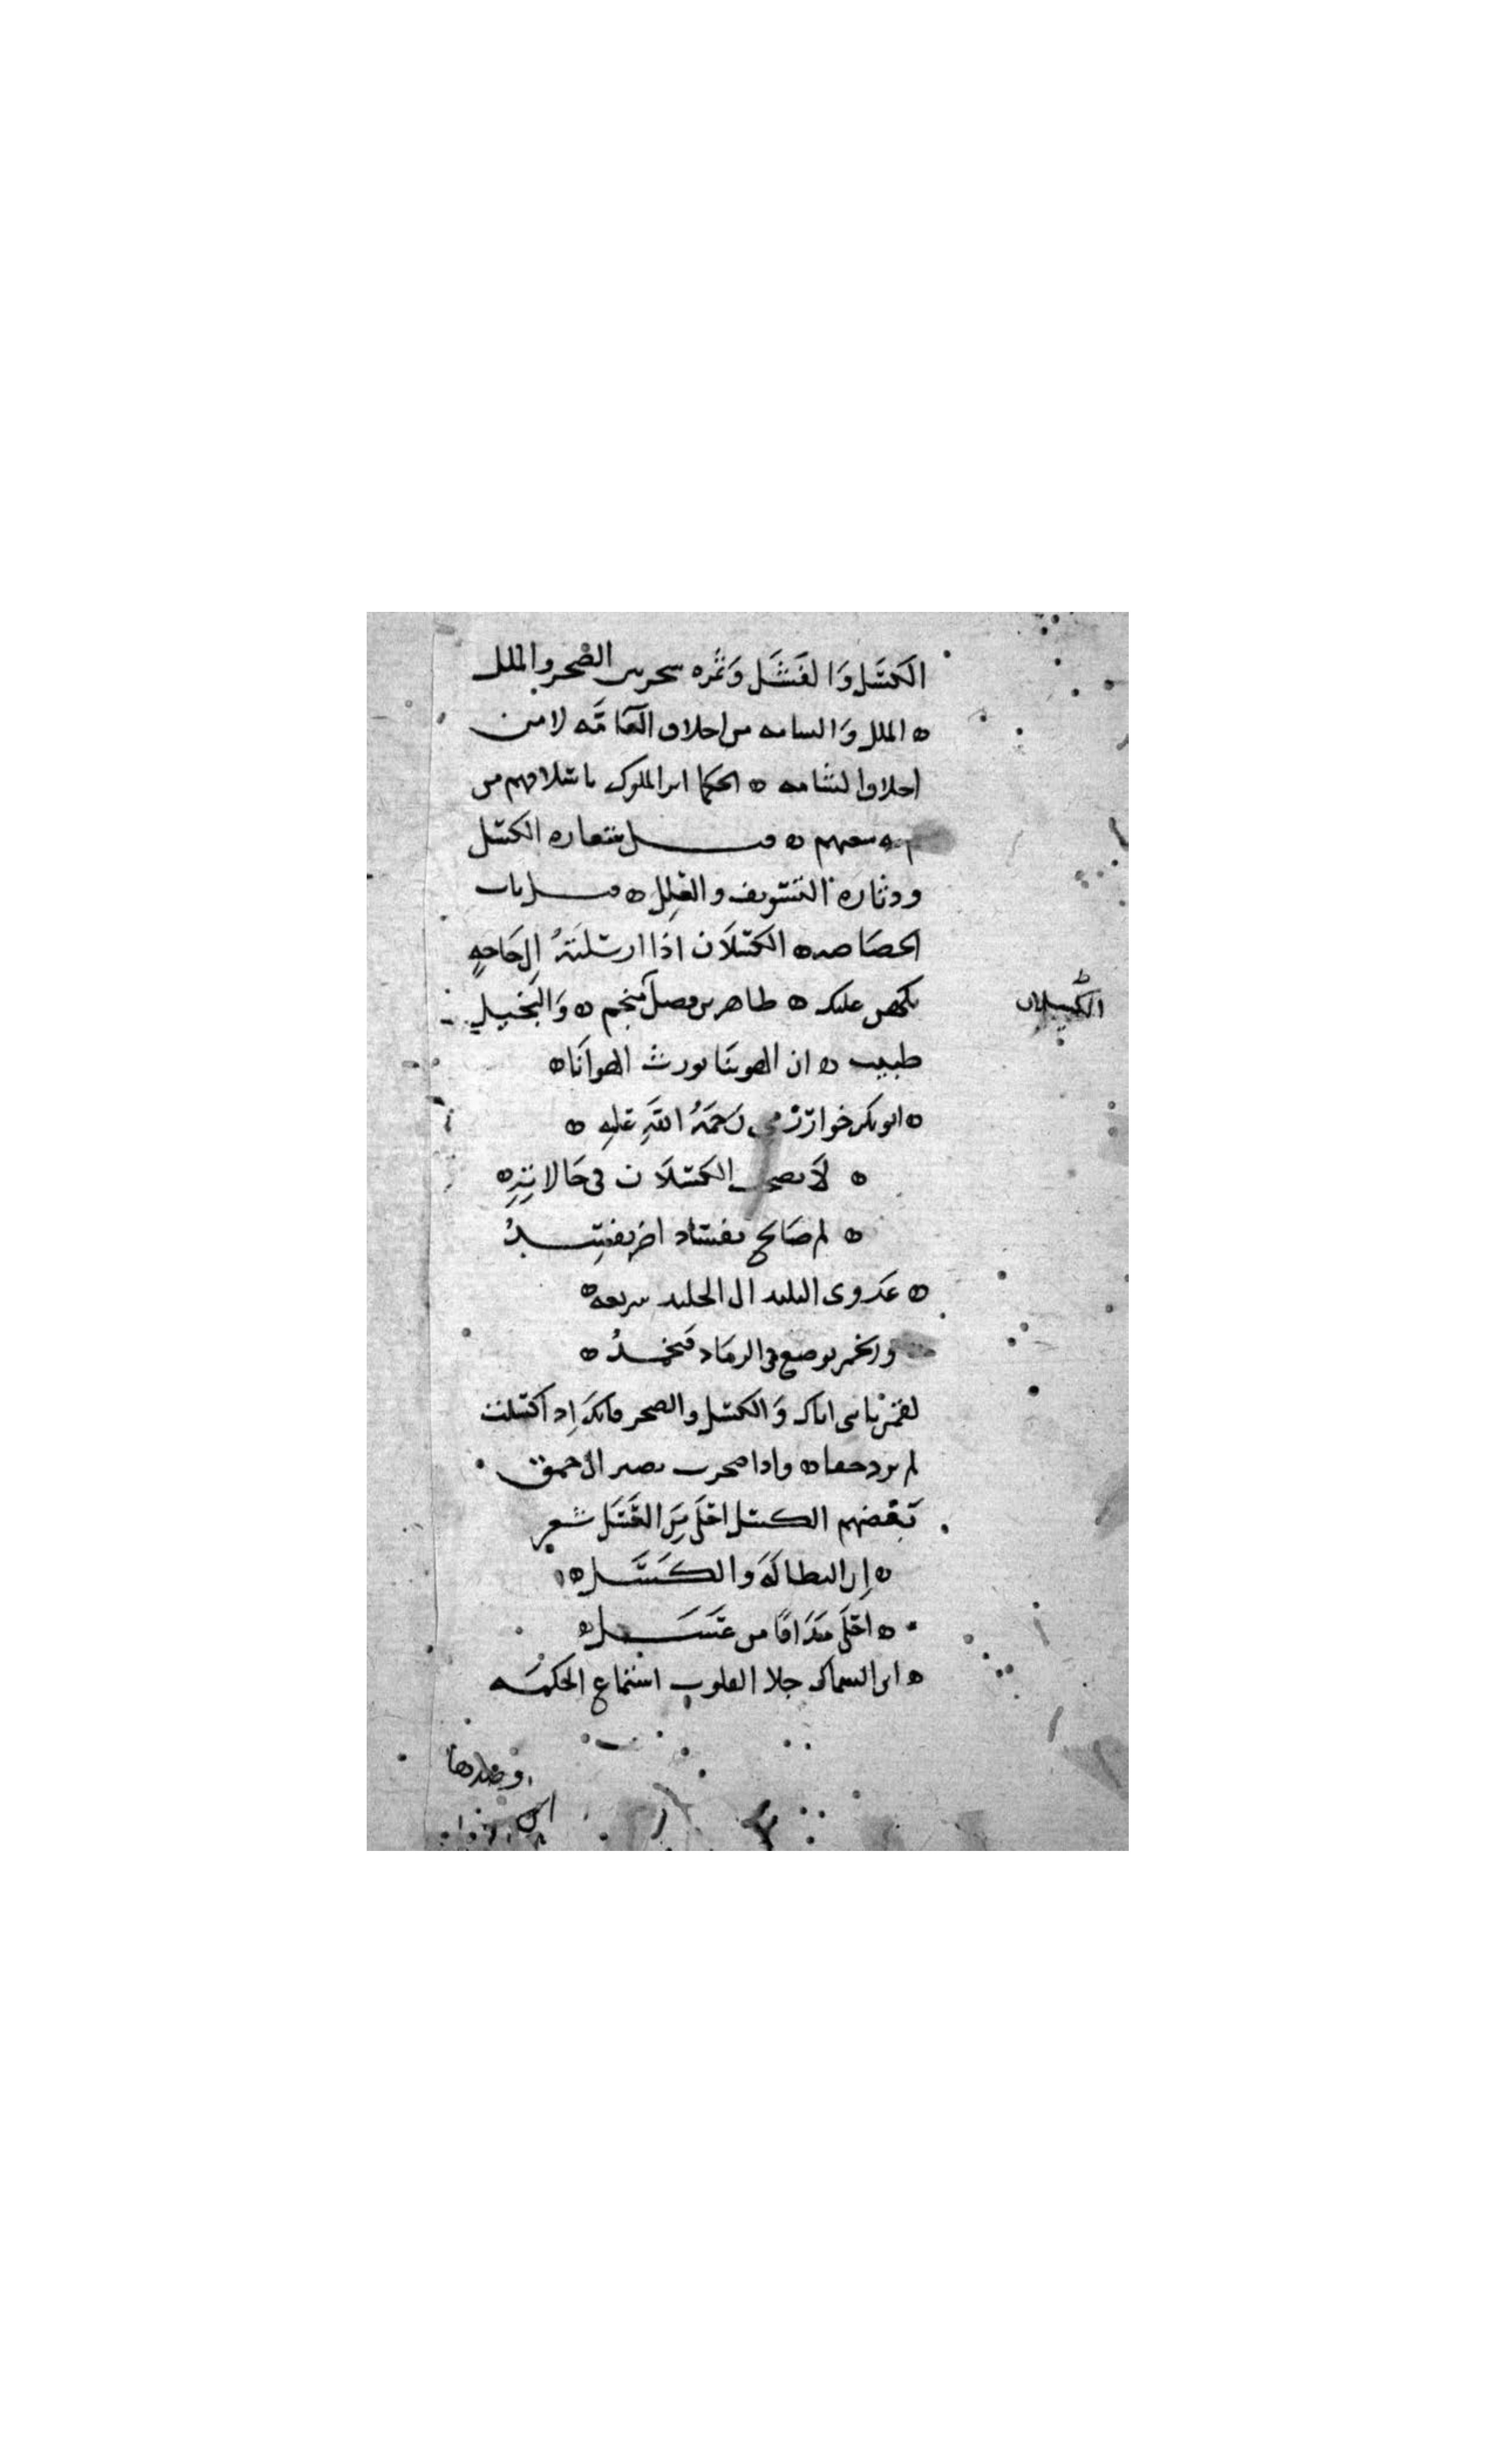 الكسل والفشل وثمره سحرس الضجر والملل
الملل والسامه من اخلاق العامه لا من
اخلاق الشامه الحكما الملوك باسلافهم من
شعاره الكسل
ودثاره التسويف والعلل قيل باب
الكسلان اذا ارسلته الى حاجه
تكهن عليك طاهر بن فضل منجم والبخيل
طبيب ان الهوينا يورث الهوانا
ابو بكر خوارزمي رحمة الله عليه
لا تصحب الكسلان في حالاته
كم صالح بفساد اخر يفسد
عدوى البليد الى الجليد سريعه
والجمر يوضع في الرماد فيخمد
لقمن يا بنى اياك والكسل والضجر فانك اذ اكسلت
لم تود حقا واذا ضجرت تصبر الاحمق
بعضهم الكسل احلى من العسل شعر
ان البطالة والكسل
احلى مذاقا من عسل
ابن السماك جلا القلوب استماع الحكمه
الكسلان